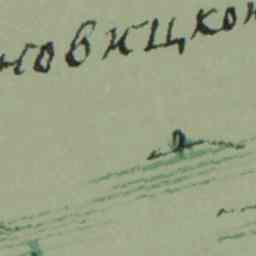 новицкой